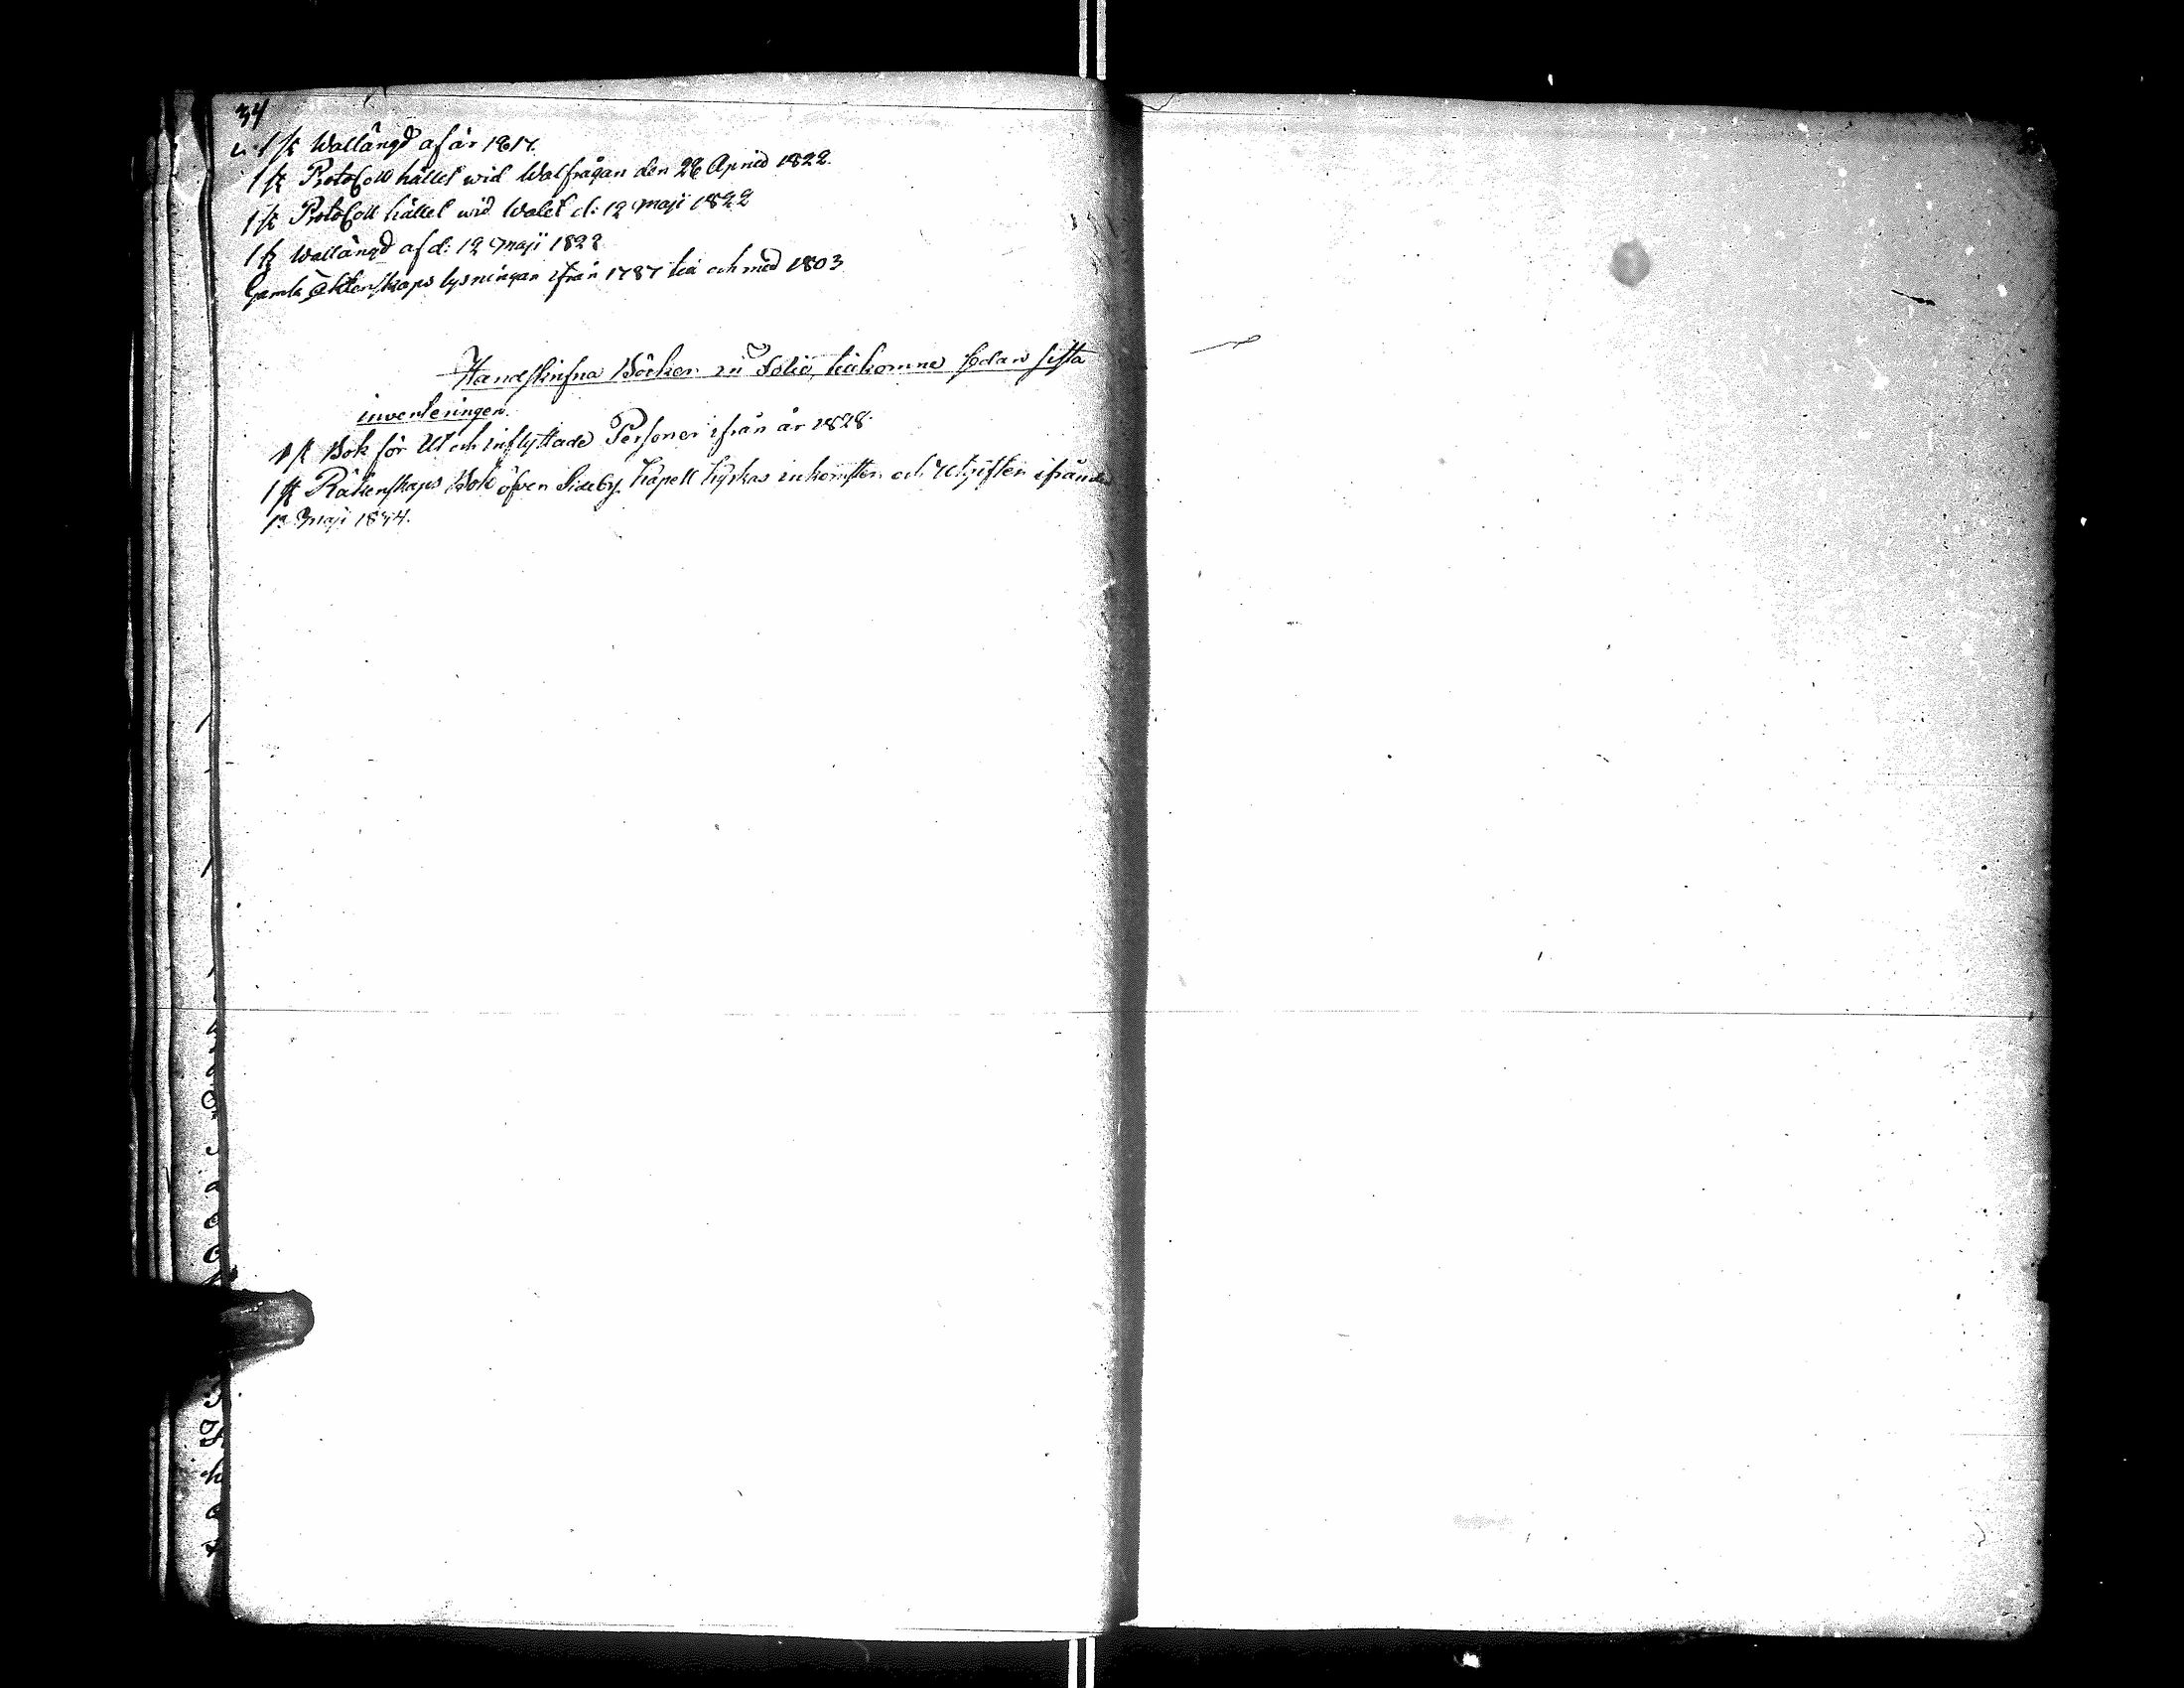 34
1 st Wallängd af år 1817.
1 st Protocoll hållet wid Walfrågan den 28 April 1822.
1 st Protocoll hållet wid Walet d: 12 Maji 1822
1 st Wallängd af d: 12 Maji 1822
Gamla Äktenskaps lysningar ifrån 1787 till och med 1803
Handskrifna Böcker in Folio, tillkomne sedan sista
inventeringen.
1 st Bok för Ut och inflyttade Personer ifrån år 1828.
1 st Räkenskaps Bok öfver Sideby Kapell Kyrkas inkomster och Utgifter ifrån den
1a Maji 1834.